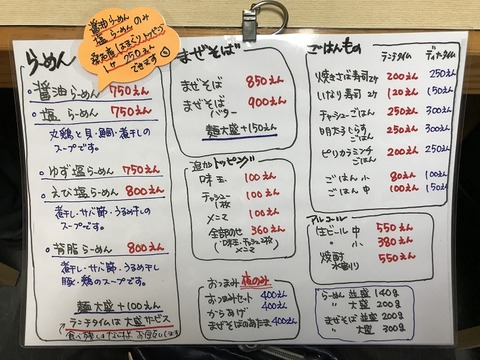 醤油らーめん のみ
塩 らーめん
1ケ 250えん
できます
らーめん
醤油らーめん 750えん
塩 らーめん 750えん
丸鶏と貝・鯛・煮干しの
スープです。
ゆず塩らーめん 750えん
えび塩らーめん 800えん
煮干し・サバ節・うるめ干しの
スープです。
背脂らーめん 800えん
煮干し・サバ節・うるめ干し
豚・鶏のスープです。
麺大盛+100えん
ランチタイムは大盛サービス
まぜそば
まぜそば 850えん
まぜそば
バター 900えん
麺大盛+150えん
追加トッピング
味玉 100えん
チャシュー
1枚 100えん
メンマ 100えん
全部のせ 360えん
(味玉・チャシュー2枚
メンマ)
おつまみ 夜のみ
おつまみセット 400えん
からあげ 400えん
まぜそばのあたま 400えん
ごはんもの
ランチタイム ディナタイム
焼きさば寿司2ケ 200えん 250えん
いなり寿司2ケ 120えん 150えん
チャシューごはん 250えん 300えん
明太子しらす
ごはん 250えん 300えん
ピリカラミンチ
ごはん 200えん 250えん
ごはん 小 80えん 100えん
ごはん 中 100えん 150えん
アルコール
生ビール 中 550えん
〃 小 380えん
焼酎
水割り 550えん
らーめん 並盛 140g
〃 大盛 200g
まぜそば 並盛 200g
〃 大盛 300g